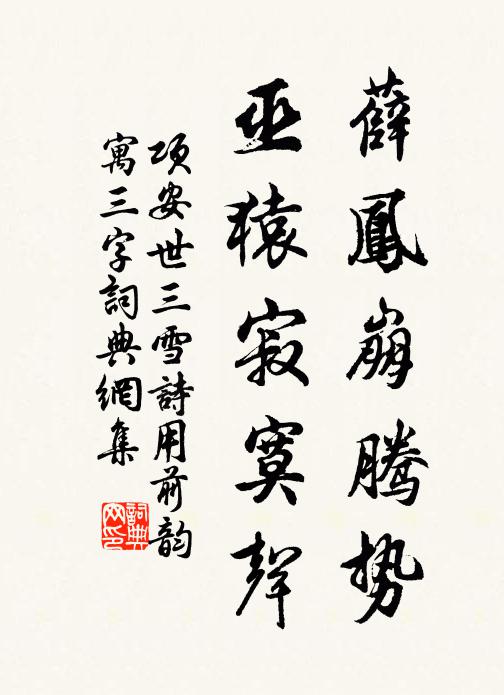 薛鳳崩騰势
巫猿寂寞聲
項安世三雪詩用前韵
寓三字詞典網集
詞典
网印